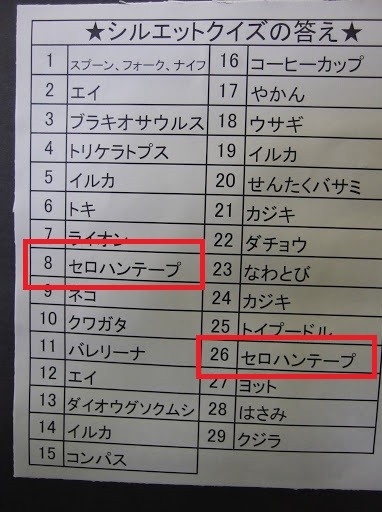 ★シルエットクイズの答え★
1 スプーン、フォーク、ナイフ
2 エイ
3 ブラキオサウルス
4 トリケラトプス
5 イルカ
6 トキ
7 ライオン
8 セロハンテープ
9 ネコ
10 クワガタ
11 バレリーナ
12 エイ
13 ダイオウグソクムシ
14 イルカ
15 コンパス
16 コーヒーカップ
17 やかん
18 ウサギ
19 イルカ
20 せんたくバサミ
21 カジキ
22 ダチョウ
23 なわとび
24 カジキ
25 トイプードル
26 セロハンテープ
27 ヨット
28 はさみ
29 クジラ